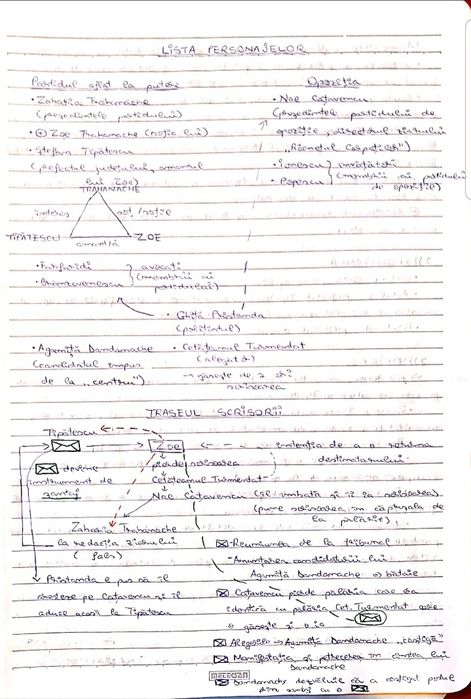 LISTA PERSONAJELOR
Partidul aflat la putere
• Zaharia Trahanache
(președintele partidului)
• Zoe Trahanache (soția lui)
• Ștefan Tipătescu
(prefectul județului, amantul
lui Zoe)
Opoziția
• Nae Cațavencu
(președintele partidului de
opoziție, directorul ziarului
„Răcnetul Carpaților")
• Ionescu
• Popescu
(membrii ai partidului
de opoziție)
TRAHANACHE
interes
soț/soție
TIPĂTESCU
ZOE
amantă
• Farfuridi
• Brânzovenescu
avocați
(membrii ai
partidului)
• Ghiță Pristanda
(polițistul)
• Agamiță Dandanache
(candidatul impus
de la „centru")
• Cetățeanul Turmentat
(alegător)
→ găsește de 2 ori
scrisoarea
TRASEUL SCRISORII
Tipătescu
Zoe
intenția de a o returna
destinatarului
pierde scrisoarea
devine
instrument de
șantaj
Cetățeanul Turmentat
Nae Cațavencu (îl îmbată și îi ia scrisoarea)
(pune scrisoarea în căptușeala
de la pălărie)
Zaharia Trahanache
la redacția ziarului
(fals)
Pristanda e pus să îl
pe Cațavencu și îl
aduce acasă la Tipătescu
Reuniunea de la tribunal
Anunțarea candidatului lui
Agamiță Dandanache → bătaie
Cațavencu pierde pălăria care era
identică cu pălăria Cet. Turmentat care
o găsește și o ia
Alegerile → Agamiță Dandanache „câștigă"
Manifestația și petrecerea în cinstea lui
Dandanache
Dandanache dezvăluie că a câștigat postul